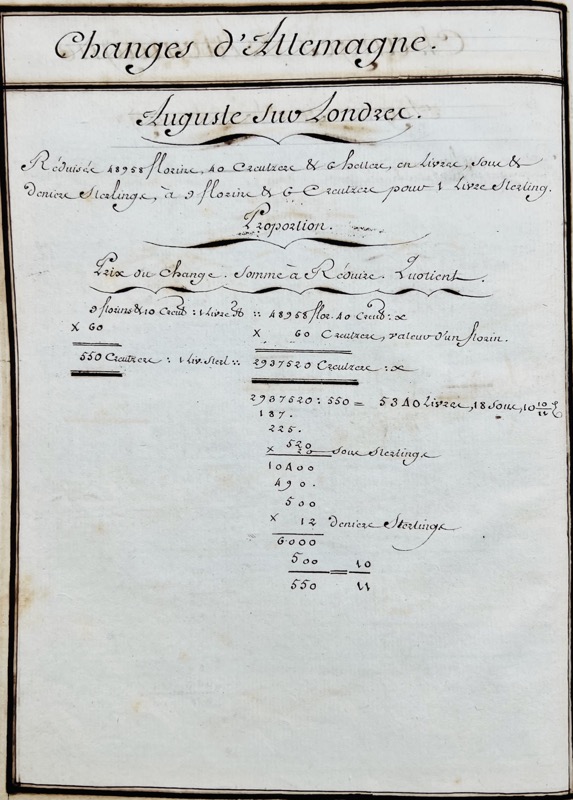 Changes d'Allemagne.
Auguste sur Londres.
Réduisés 48958 florins, 40 Creutzers & 6 hellers, en Livres, sous &
deniers Sterlings, à 9 florins & 6 Creutzers pour 1 Livre Sterling.
Proportion.
Prix du Change. Somme à Réduire. Quotient.
9 florins & 10 Creutz : 1 Livre St :: 48958 flor. 40 Creutz : x
x 60 x 60 Creutzers, valeur d'un florin.
550 Creutzers : 1 Liv. Sterl :: 2937520 Creutzers : x
2937520 : 550 = 5340 Livres, 18 Sous, 10 10/11
187.
225.
520
x 20 sous Sterlings
10400
490.
500
x 12 deniers Sterlings
6000
500/550 = 10/11